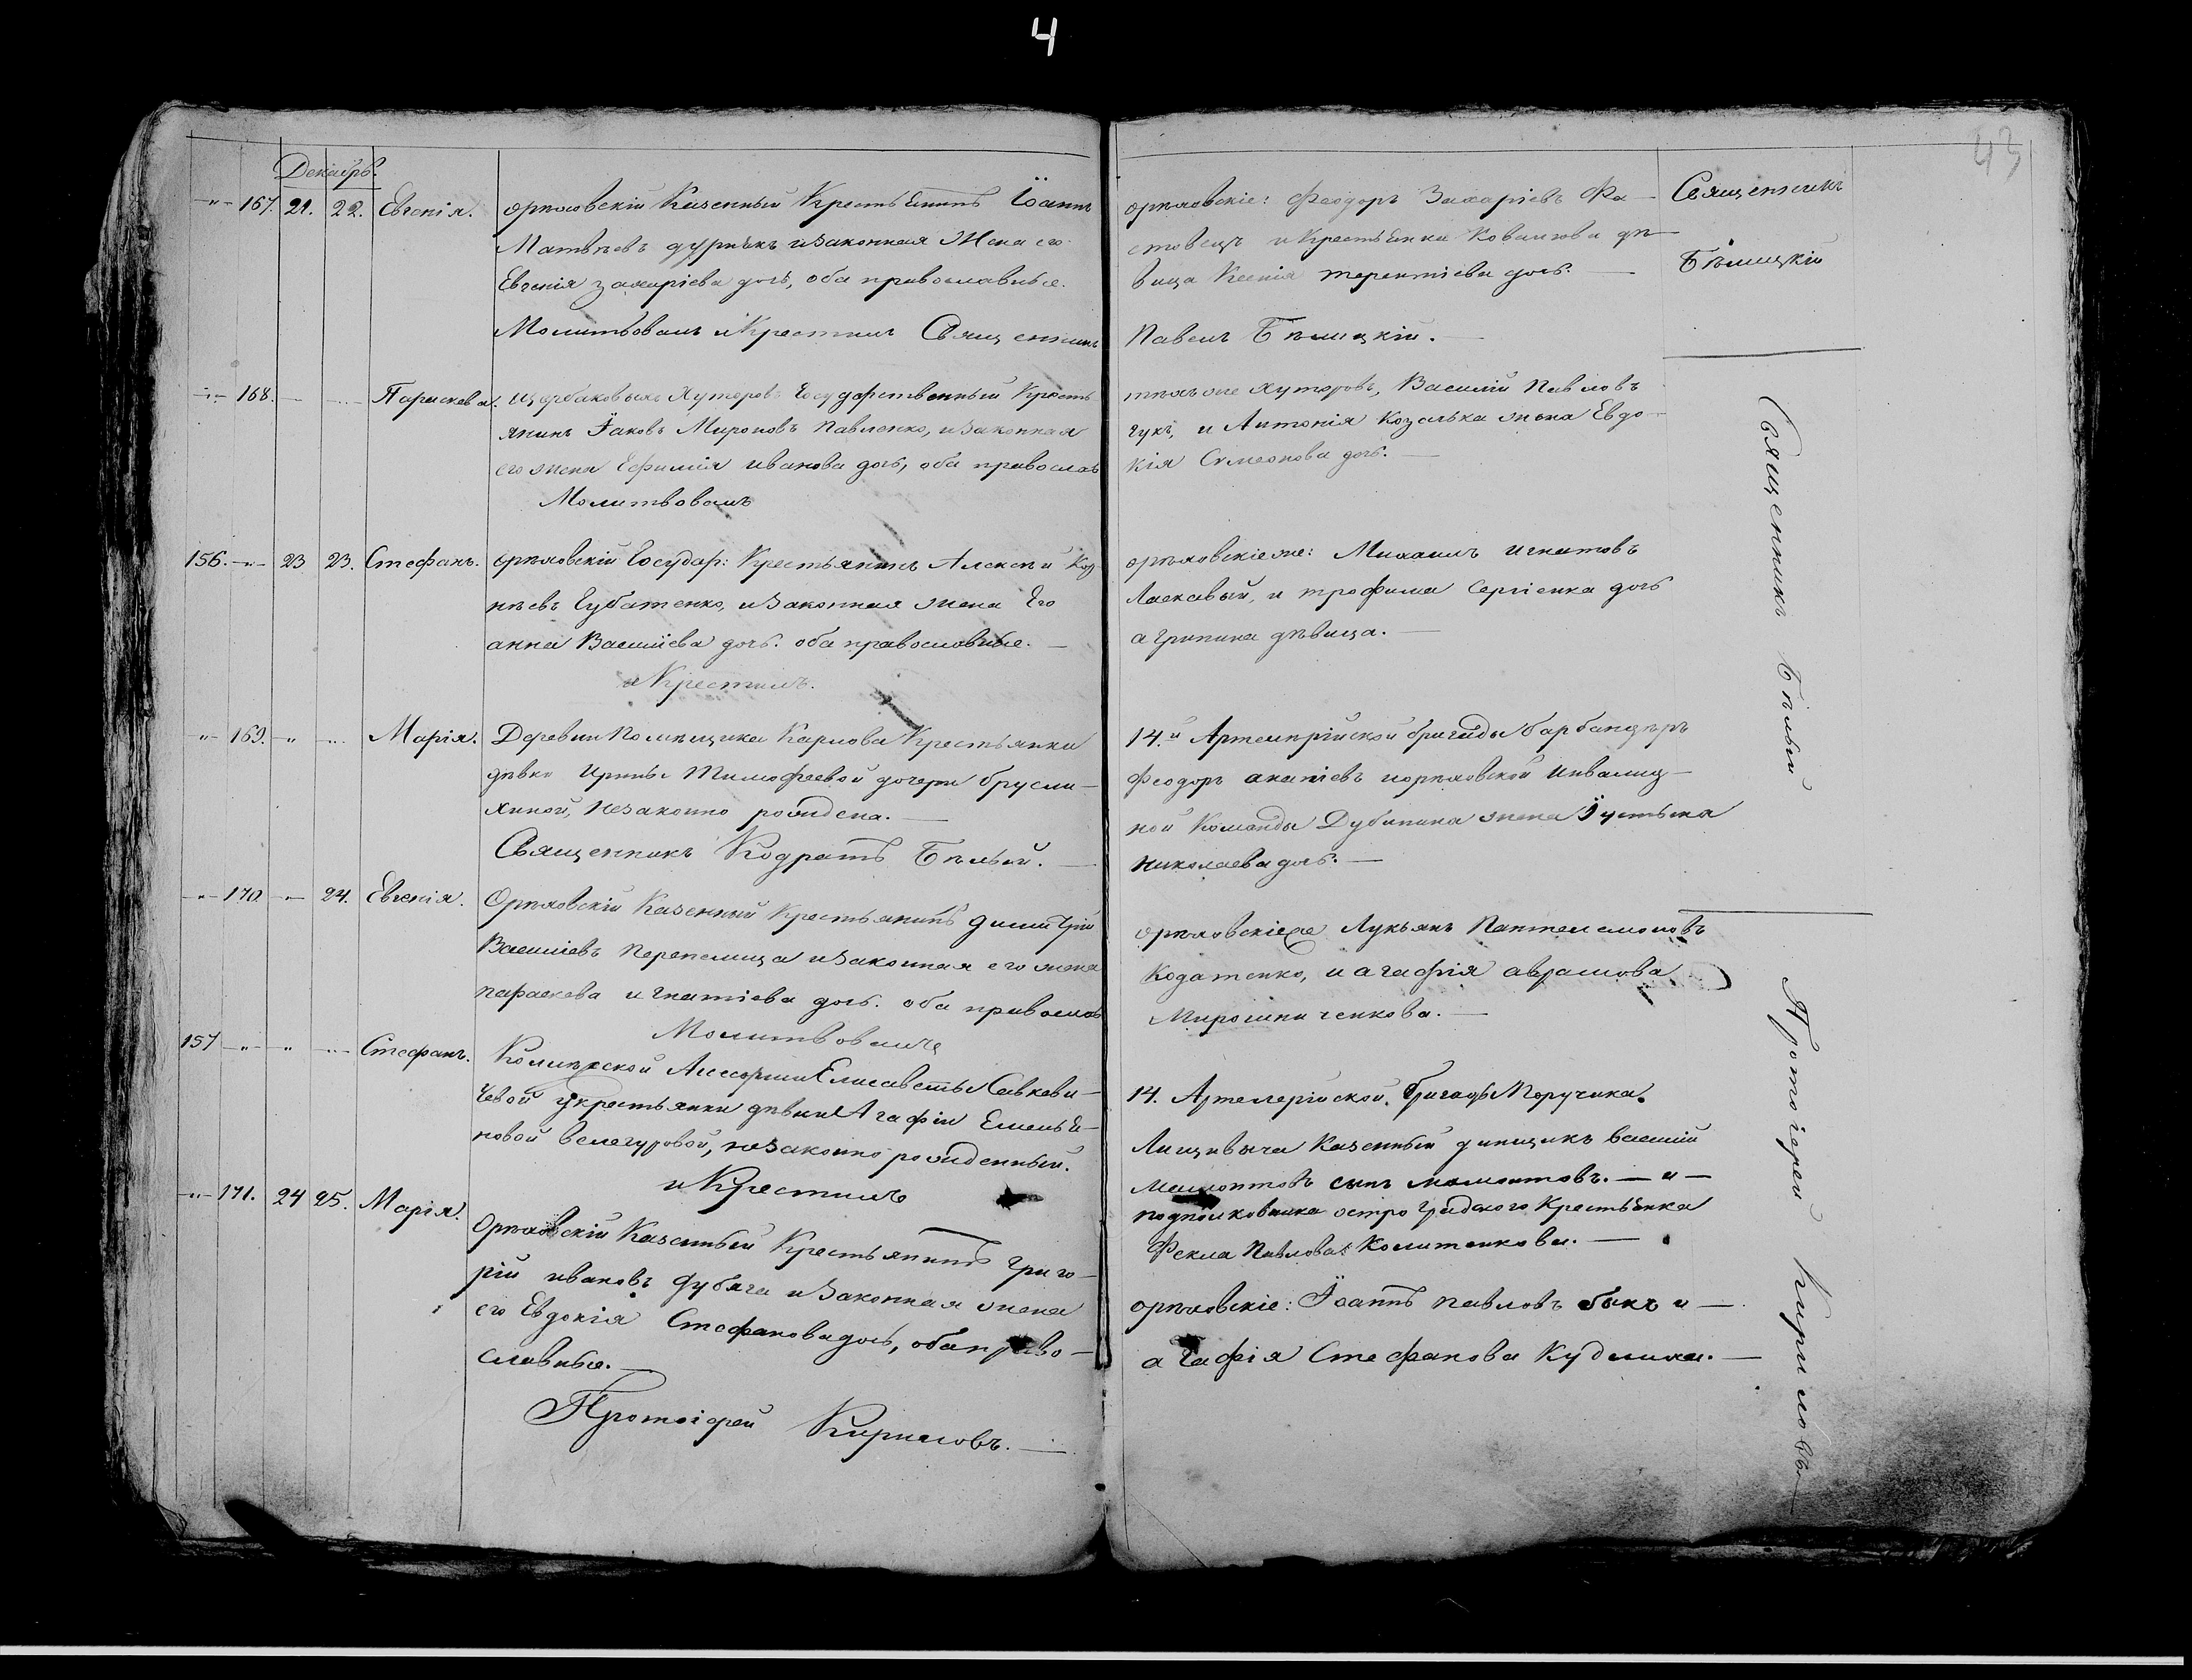 4
43
Декабрь.
-"- 167. 21. 22. Евгенія. орѣховскій Казенный Крестьянинъ Іоаннъ
Матвѣевъ дурнѣкъ и законная Жена его
Евгенія захаріева дочь, оба православные.
Молитвовалъ и Крестилъ Священникъ
орѣховскіе: Феодоръ Захаріевъ Фа-
стовецъ и Крестьянки Ковалiова дѣ-
вица Ксенія терентіева дочь.
Павелъ Бѣлицкій.
Священникъ
Бѣлицкій
-"- 168. Параскева. щербаковыхъ Хуторовъ Государственный Кресть-
янинъ Іаковъ Мироновъ Павленко, и законная
его жена Ефимія иванова дочь, оба православ
Молитвовалъ
тѣхъ же хуторовъ, Василій Павловъ
гукъ, и Антонія Козалька жена Евдо-
кія Симеонова дочь.
156. -"- 23 23. Стефанъ. орѣховскій Государ: Крестьянинъ Алексѣй Коз
нѣевъ Губатенко, и законная жена Его
анна Василіева дочь. оба православные.
и Крестилъ.
орѣховскіе же: Михаилъ игнатовъ
Ласкавый, и трофима Сергіенка дочь
агрипина дѣвица.
-"- 169. -"- Марія. Деревни Помѣщика Карпова Крестьянки
дѣвки Ирины Тимофеевой дочери брусли-
хиной, незаконно рождена.
Священникъ Кодратъ Бѣлый.
14.й Артелирійской бригады барбанщикъ
Феодоръ анатіевъ и орѣховской инвалид-
ной Команды Дубинина жена Іустьяна
николаева дочь.
Священникъ Бѣлый
-"- 170. -"- 24. Евгенія. Орѣховскій Казенный Крестьянинъ димитрій
Василіевъ Перепелица и законная его жена
параскева игнатіева дочь. оба православ
Молитвовалъ
орѣховскіе же Лукьянъ Пантелемоновъ
Кодатенко, и агафія аврамова
Мирошниченкова.
157 -"- -"- Стефанъ. Колежской Ассесорши Елисаветы Савкеви-
чевой у крестьянки дѣвки Агафіи Емелья-
новой велегуровой, незаконно рожденный.
и Крестилъ
14. Артелерійской. бригады Поручика.
Лищивыча Казенный динщикъ василій
мамонтовъ сынъ мамонтовъ. - и -
подполковника остроградского Крестьянка
Фекла Павлова Колитенкова.
-"- 171. 24 25. Марія. Орѣховскій Казенный Крестьянинъ Григо-
рій ивановъ дубяга и законная жена
его Евдокія Стефанова дочь, оба право-
славные.
Протоіерей Кириловъ.
орѣховскіе: Іоаннъ павловъ быкъ и
агафія Стефанова Кудлика.
Протоіерей Кириловъ.